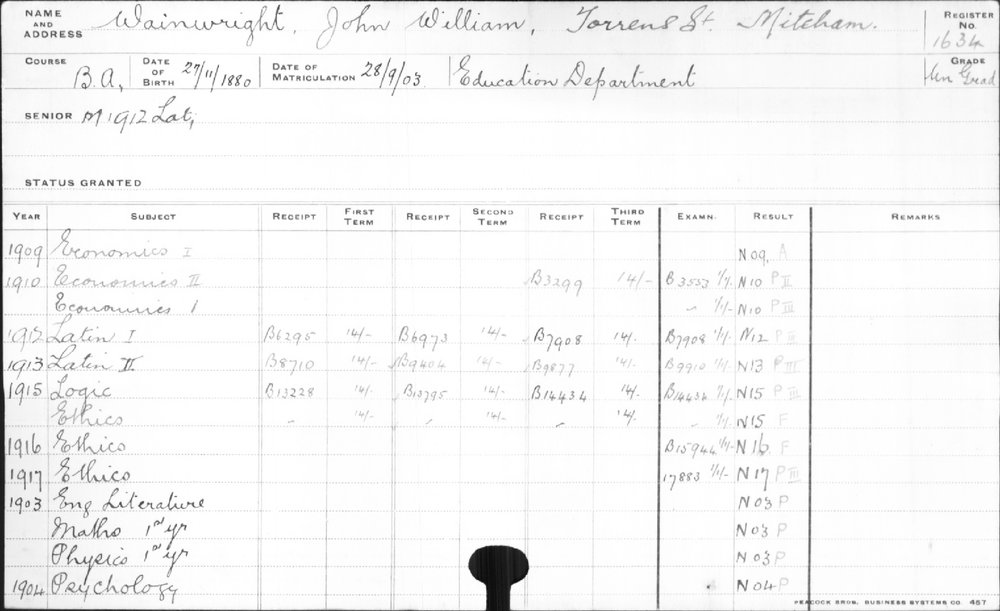 NAME AND ADDRESS Wainwright, John William, Torrens St. Mitcham. REGISTER No. 1634
COURSE B.A, DATE OF BIRTH 27/11/1880 DATE OF MATRICULATION 28/9/03 Education Department GRADE Un Grad
SENIOR M 1912 Lat,
STATUS GRANTED
YEAR SUBJECT RECEIPT FIRST TERM RECEIPT SECOND TERM RECEIPT THIRD TERM EXAMN. RESULT REMARKS
1909 Economics I N 09, A
1910 Economics II B3299 14/- B3553 1/1/- N10 P II
Economics I " 1/1/- N10 P III
1912 Latin I B6295 14/- B6973 14/- B7908 14/. B7908 1/1/- N12 P III
1913 Latin II B8710 14/- B9404 14/- B9877 14/. B9910 1/1/- N13 P III
1915 Logic B13228 14/- B13795 14/- B14434 14/. B14434 N15 P III
Ethics " 14/- " 14/- " 14/. " N15 F
1916 Ethics B15944 1/1/- N 16 F
1917 Ethics 17883 1/1/- N 17 P III
1903 Eng Literature N 03 P
Maths 1st yr N 03 P
Physics 1st yr N 03 P
1904 Psychology N 04 P
PEACOCK BROS. BUSINESS SYSTEMS CO. 457